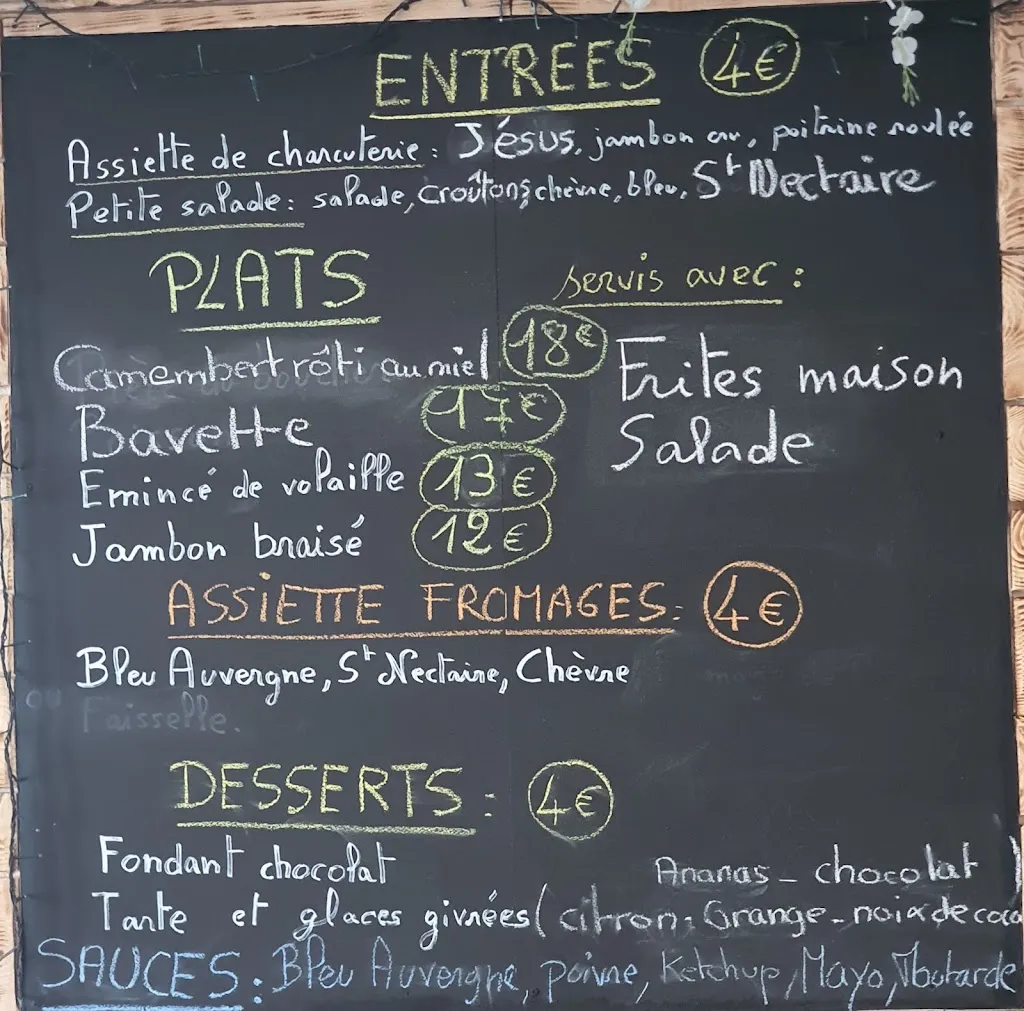 ENTREES 4€
Assiette de charcuterie : Jésus, jambon cru, poitrine roulée
Petite salade : salade, croûtons, chèvre, bleu, St Nectaire
PLATS
servis avec :
Camembert rôti au miel 18€
Frites maison
Bavette 17€
Salade
Emincé de volaille 13€
Jambon braisé 12€
ASSIETTE FROMAGES : 4€
Bleu Auvergne, St Nectaire, Chèvre
ou
Faisselle.
DESSERTS : 4€
Fondant chocolat
Ananas - chocolat )
Tarte et glaces givrées ( citron, Orange - noix de coco
SAUCES : Bleu Auvergne, poivre, Ketchup, Mayo, Moutarde